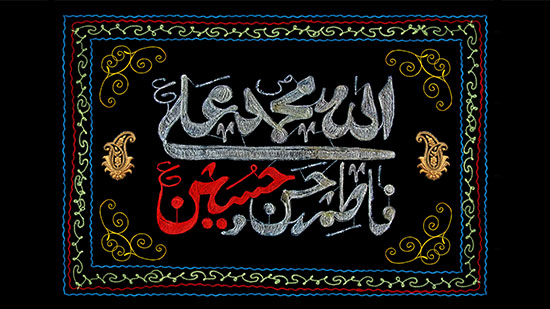 الله محمد ص علی ع
فاطمه حسن حسین ع